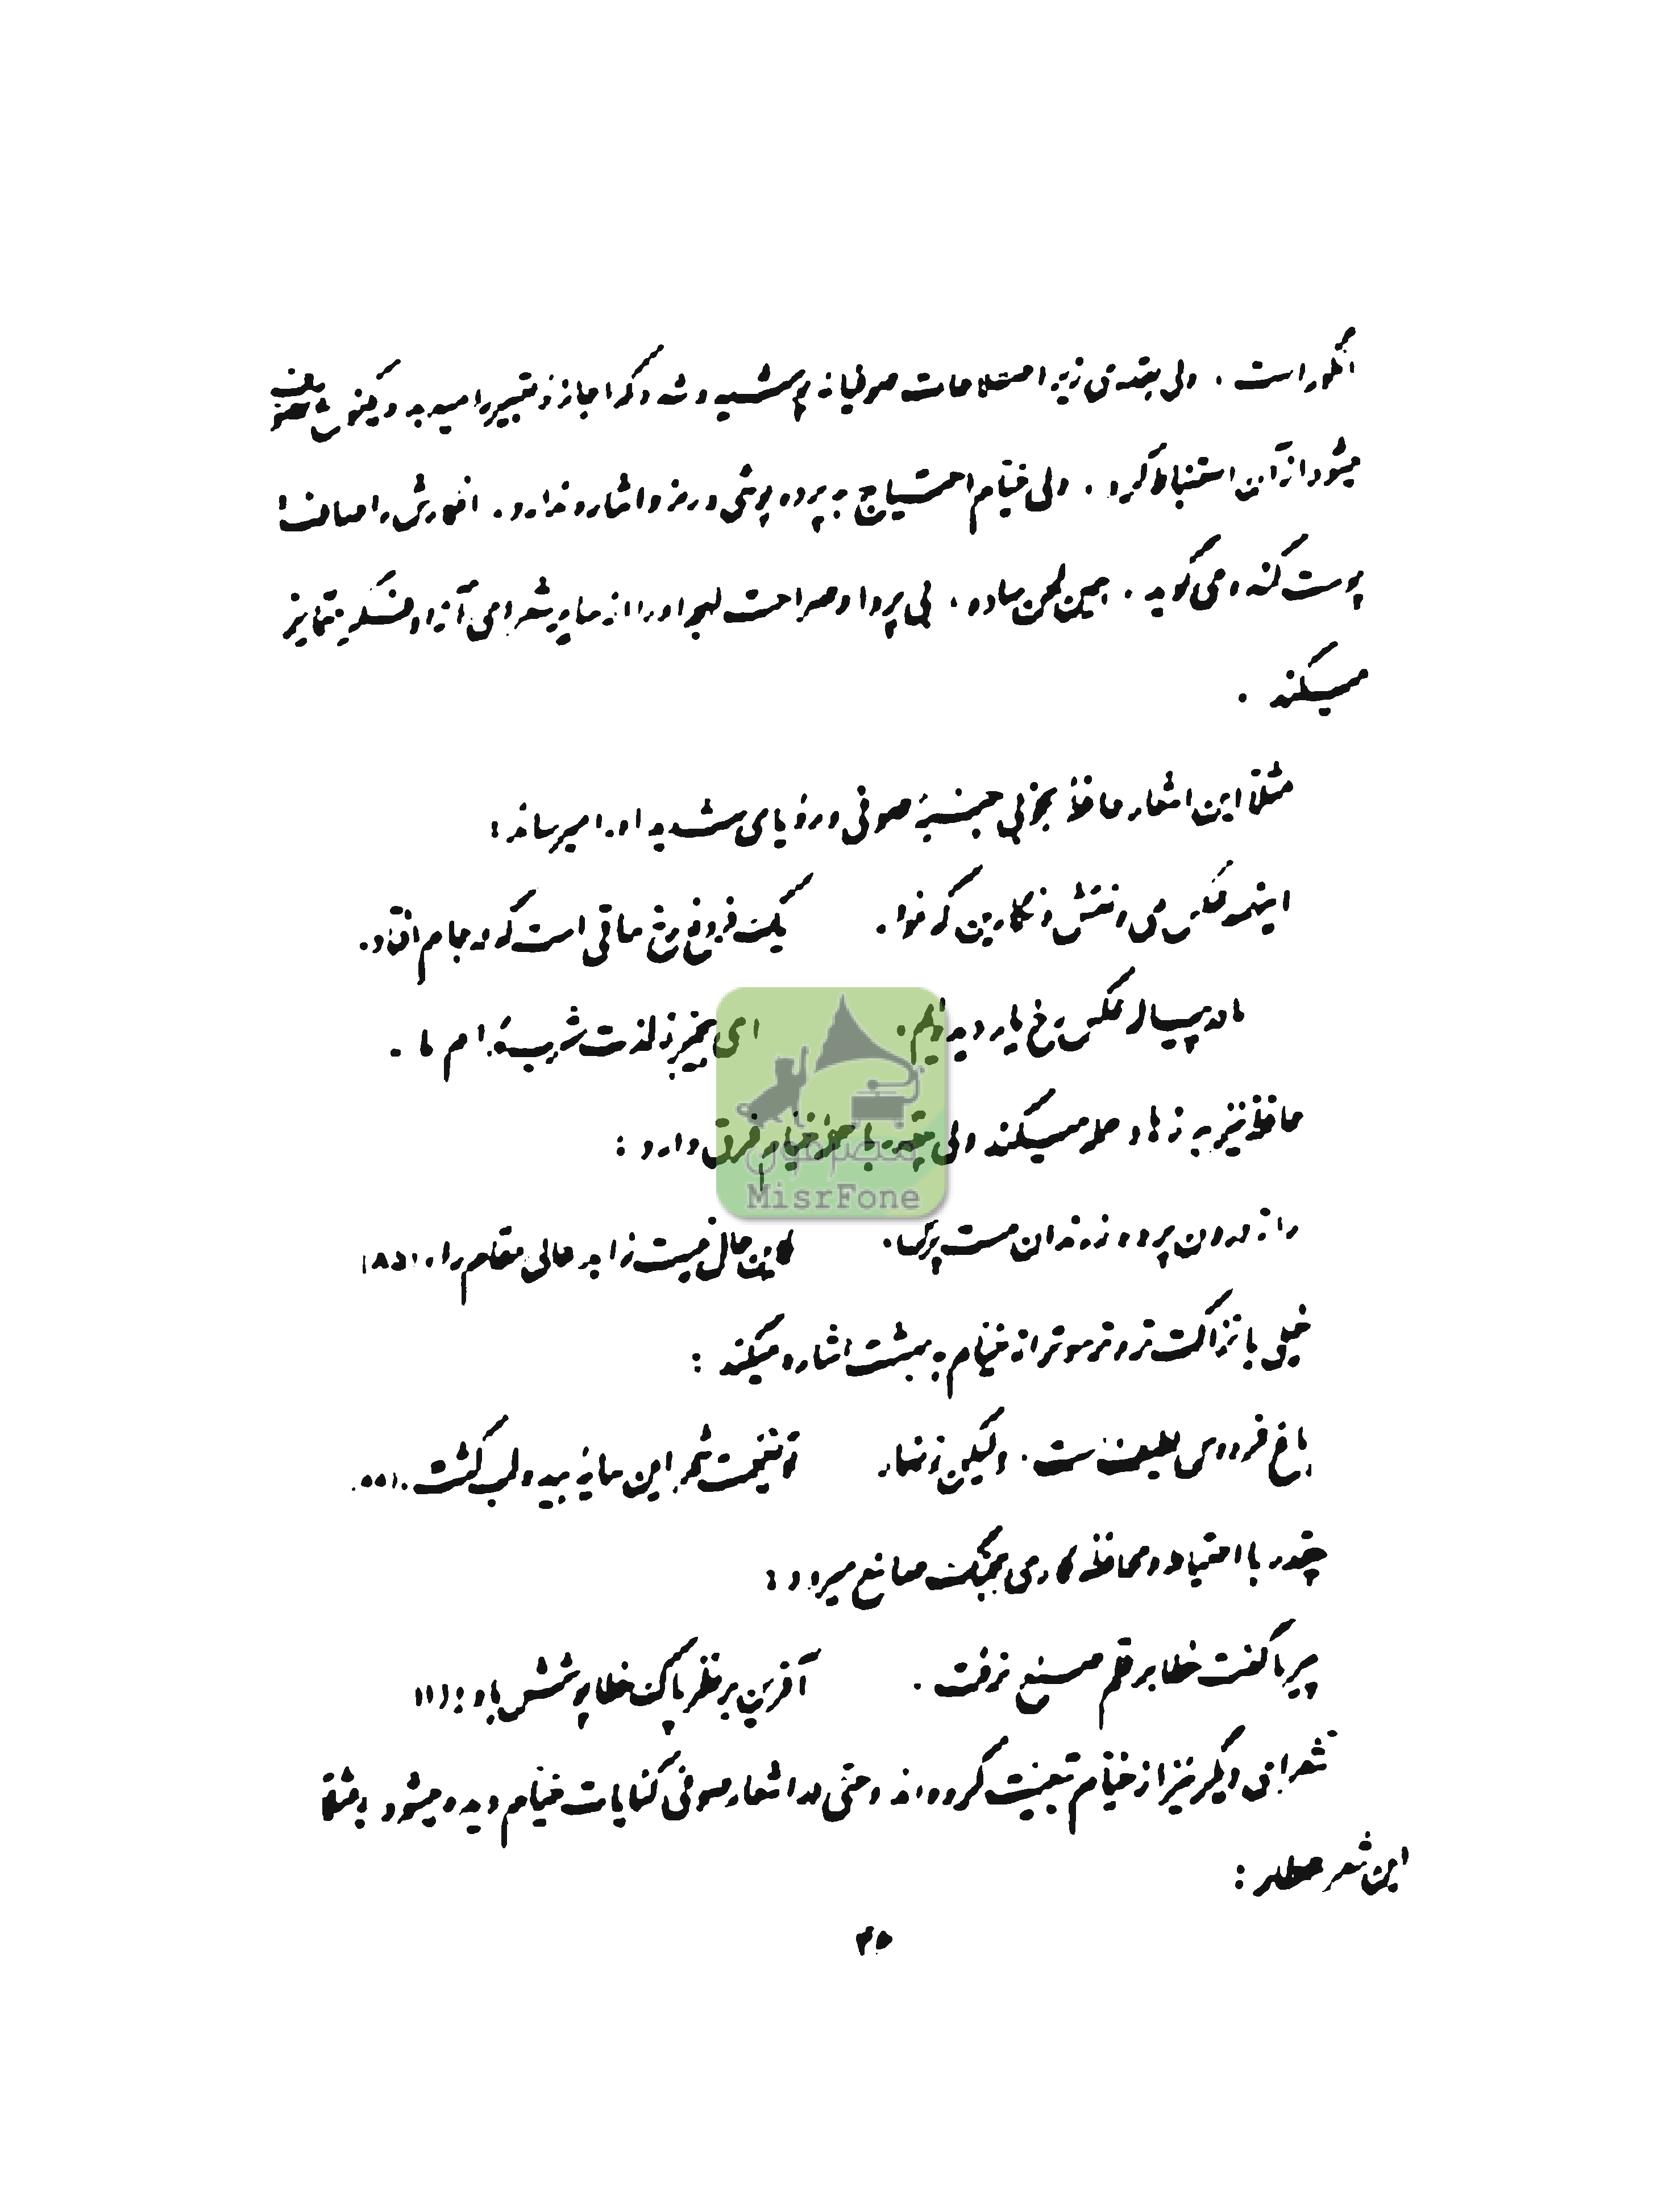 انگور است. ولی بقدری زیر اصطلاحات صوفیانه پوشیده شده که اجازهٔ تعبیر را میدهد و یکنوع تصوف
میشود از آن استنباط کرد. ولی خیام احتیاج به پرده پوشی و رمز و اشاره ندارد. افکارش را صاف
پوست کنده می گوید. همین لحن ساده، بی پروا و صراحت لهجه او را از سایر شعرای آزاد فکر متمایز
میکند.
مثلاً این اشعار حافظ بخوبی جنبهٔ صوفی و رؤیای شدید او را میرساند:
اینهمه عکس می و نقش و نگارین که نمود. یک فروغ رخ ساقی است که در جام افتاد.
ما در پیاله عکس رخ یار دیده‌ایم. ای بیخبر ز لذت شرب مدام ما.
حافظ نیز به زهاد حمله میکند ولی چقدر با حملهٔ خیام فرق دارد:
راز درون پرده ز رندان مست پرس. کاین حال نیست زاهد عالی مقام را.
خیلی با نزاکت‌تر و ترسوتر از خیام به بهشت اشاره میکند:
باغ فردوس لطیف است. ولیکن زنهار. تو غنیمت شمر این سایهٔ بید و لب کشت.
چقدر با احتیاط و محافظه کاری بجنگ صانع میرود:
پیر ما گفت خطا بر قلم صنع نرفت. آفرین بر نظر پاک خطا پوشش باد!
شعرای دیگر نیز از خیام تبعیت کرده‌اند و حتی در اشعار صوفی کنایات خیام دیده میشود مثلاً
این شعر عطار:
۳۵
مصرفون
MisrFone